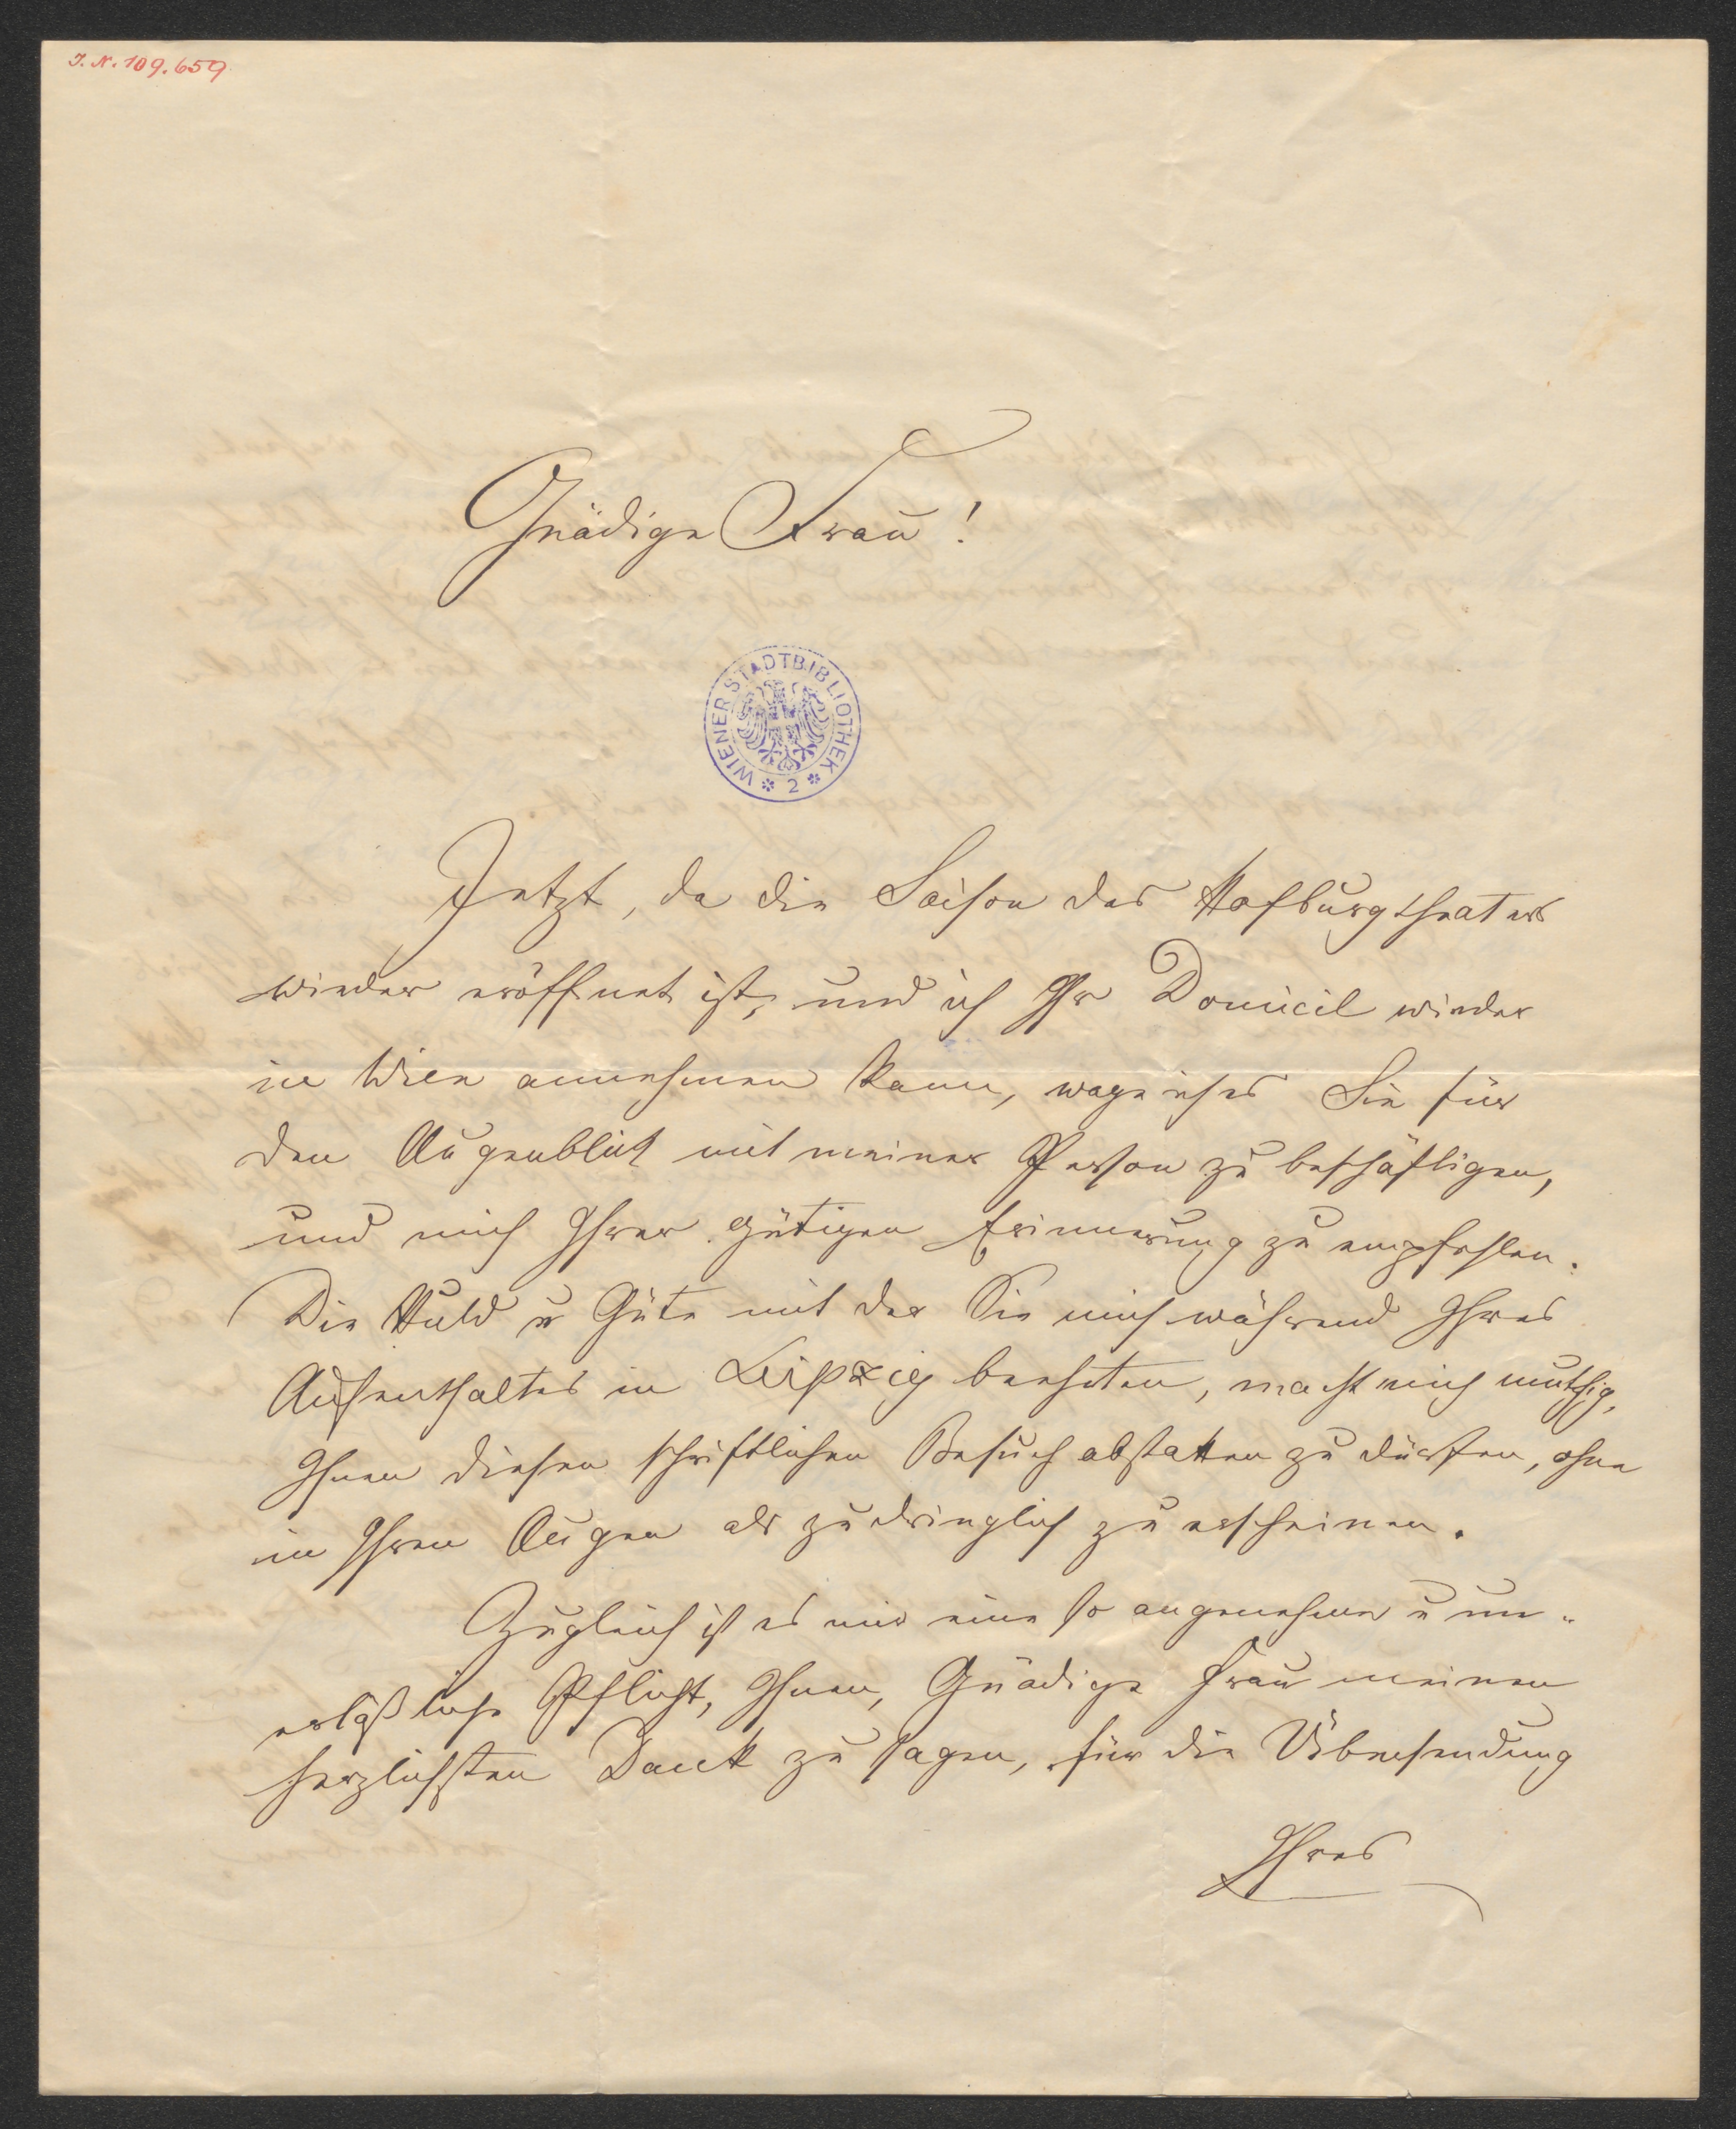 J. N. 109.659
Gnädige Frau!
WIENER STADTBIBLIOTHEK * 2 *
Jetzt, da die Saison des Hofburgtheaters
wieder eröffnet ist, und ich Ihr Domicil wieder
in Wien annehmen kann, wage ich es Sie für
den Augenblick mit meiner Person zu beschäftigen,
und mich Ihrer gütigen Erinnerung zu empfehlen.
Die Huld u Güte mit der Sie mich während Ihres
Aufenthaltes in Leipzig beehrten, macht mich muthig,
Ihnen diesen schriftlichen Besuch abstatten zu dürfen, ohne
in Ihren Augen als zudringlich zu erscheinen.
Zugleich ist es mir eine so angenehme u un-
erläßliche Pflicht, Ihnen, Gnädige Frau meinen
herzlichsten Dank zu sagen, für die Übersendung
Ihres